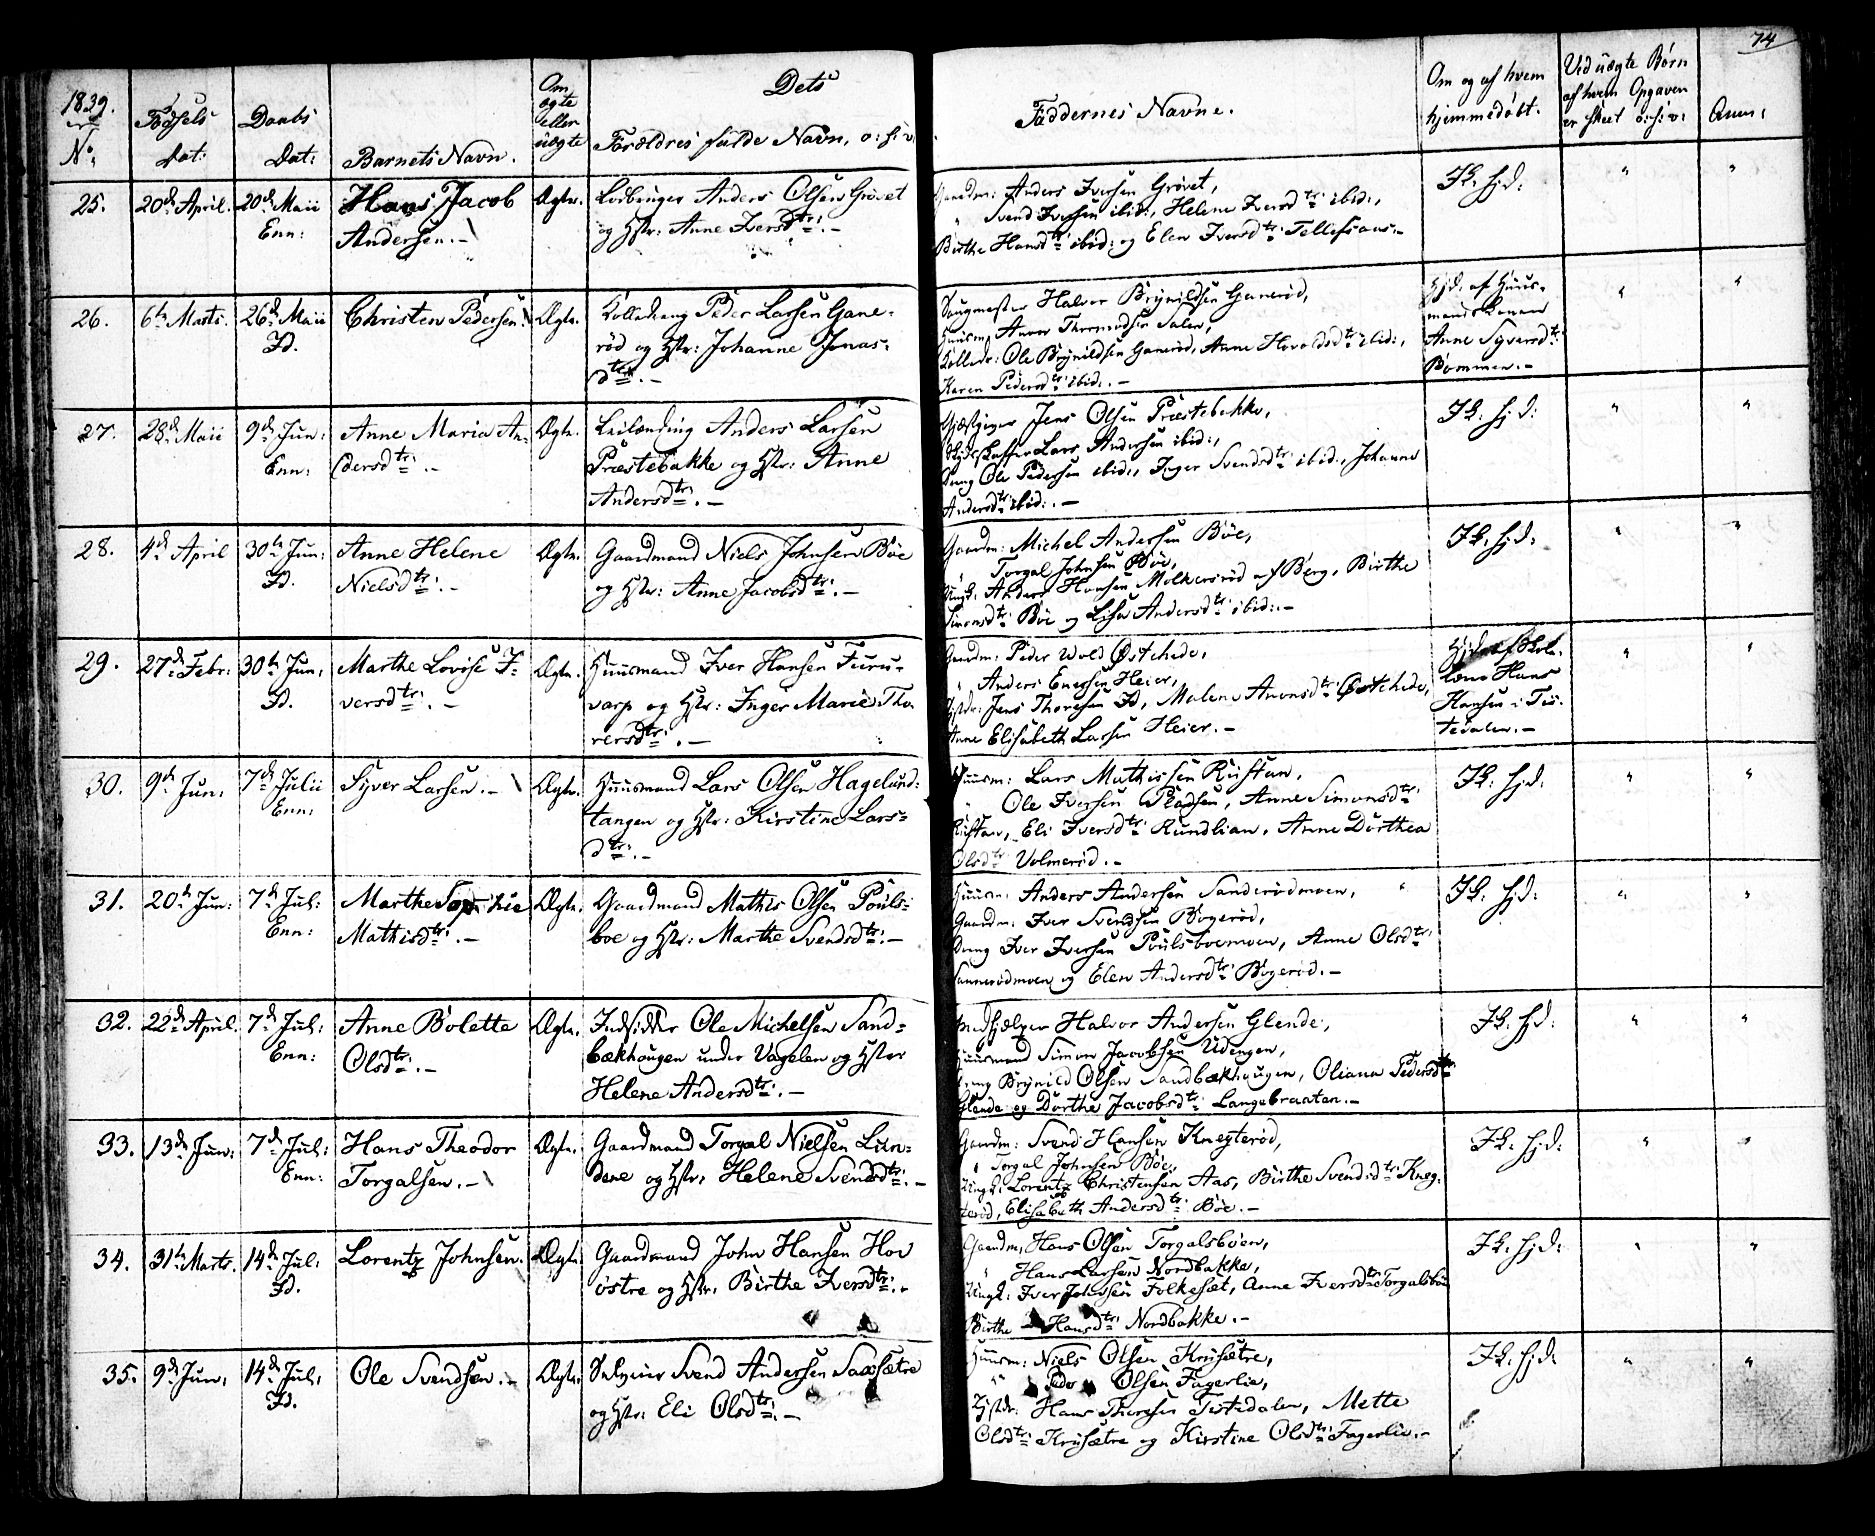 74
1839.
No.
Fødsels
Dat:
Daabs
Dat:
Barnets Navn.
Om
ægte
eller
uægte
Dets
Forældres fulde Navn, o: s: v:
Faddernes Navne.
Om og af hvem
hjemmedøbt.
Ved uægte Børn
af hvem Opgaven
er skeet o: s: v:
Anm:
25. 20de April. 20de Maii Hans Jacob Ægte.
Enn: Andersen.-
Anders Olsen Grøvet
og Hstr: Anne Iversdtr:.-
Gaardm: Anders Iversen Grøvet,
Svend Iversen ibid:, Helene Iversdtr: ibid:,
Birthe Hansdtr: ibid: og Elen Iversdtr: Tellefsaas.-
Ik: hj: d:
26. 6te Marts. 26de Maii Christen Pedersen. Ægte.
Id.
Peder Larsen Gane-
rød og Hstr: Johanne Jonas-
dtr:.-
Saugmester Halvor Brynildsen Ganerød,
Huusm,
Ole Brynildsen Ganerød, Anne ibid:,
Karen Pedersdtr: ibid:.-
Hjd. af Huus-
mandskonen
Anne Syversdtr:
Bommen.-
27. 28de Maii 9de Jun: Anne Maria An- Ægte.
Enn: dersdtr:.-
Leilænding Anders Larsen
Præstebakke og Hstr: Anne
Andersdtr:.-
Gjæstgiver Jens Olsen Præstebakke,
Skydsskaffer Lars Andersen ibid:,
Dreng Ole Pedersen ibid:, Inger Svendsdtr: ibid:, Johanne
Andersdtr: ibid:.-
Ik: hj: d:
28. 4de April 30te Jun: Anne Helene Ægte.
Id. Nielsdtr:.-
Gaardmand Niels Johnsen Bøe
og Hstr: Anne Jacobsdtr:.-
Gaardm: Michel Andersen Bøe,
Torgal Johnsen Bøe,
Ungk: Anders Hansen Molkersrød af Berg, Birthe
Simonsdtr: Bøe og Lisa Andersdtr: ibid:.-
Ik: hj: d:
29. 27de Febr: 30te Jun: Marthe Lovise I- Ægte.
Id. versdtr:.-
Huusmand Iver Hansen Furu-
varp og Hstr: Inger Marie Tho-
rersdtr:.-
Gaardm: Peder Wold Østehede,
Anders Enersen Heier,
Jens Thoresen Id, Malene Anonsdtr: Østehede,
Anne Elisabeth Larsen Heier.-
Hjd. af Skole-
lærer Hans
Hansen i Tis-
tedalen.-
30. 9de Jun: 7de Julii Syver Larsen.- Ægte.
Enn:
Huusmand Lars Olsen Hagelund-
tangen og Hstr: Kirstine Lars-
dtr:.-
Huusm: Lars Mathissen Rustan,
Ole Iversen Pladsen, Anne Simonsdtr:
Rustan, Eli Iversdtr: Rundlian, Anne Dorthea
Olsdtr: Volmerød.-
Ik: hj: d:
31. 20de Jun: 7de Jul: Marthe Sophie Ægte.
Enn: Mathisdtr:.-
Gaardmand Mathis Olsen Pouls-
boe og Hstr: Marthe Svendsdtr:.-
Huusm: Anders Andersen Sanderødmoen,
Gaardm: Iver Svendsen Bøgerød,
Dreng Iver Iversen Poulsboemoen, Anne Olsdtr:
Sannerødmoen og Elen Andersdtr: Bøgerød.-
Ik: hj: d:
32. 22de April. 7de Jul: Anne Bolette Ægte.
Enn: Olsdtr:.-
Indsidder Ole Michelsen Sand-
bækhougen under Vagelen og Hstr
Helene Andersdtr:.-
Medhjælper Halvor Andersen Glende,
Huusmand Simon Jacobsen Udengen,
Dreng Brynild Olsen Sandbækhaugen, Oliana Pedersdtr
Glende og Dorthe Jacobsdtr: Langebraaten.-
Ik: hj: d:
33. 13de Jun: 7de Jul: Hans Theodor Ægte.
Enn: Torgalsen.-
Gaardmand Torgal Nielsen Lun-
dene og Hstr, Helene Svendsdtr:.-
Gaardm: Svend Hansen Knegterød,
Torgal Johnsen Bøe,
Ungk: Lorentz Christensen Aas, Birthe Svendsdtr: Kneg-
terød, Elisabeth Andersdtr: Bøe.-
Ik: hj: d:
34. 31te Marts. 14de Jul: Lorentz Johnsen. Ægte.
Id.
Gaardmand John Hansen Hov
østre og Hstr. Birthe Iversdtr:.-
Gaardm, Hans Olsen Torgalsbøen,
Hans Larsen Nordbakke,
Ungk: Iver Johnsen Folkesæt, Anne Iversdtr: Torgalsbøen
Birthe Hansdtr: Nordbakke.-
Ik: hj: d:
35. 9de Jun, 14de Jul, Ole Svendsen.- Ægte.
Id.
Svend Andersen Saxsætre
og Hstr: Eli Olsdtr:.-
Huusm: Niels Olsen Krusætre,
Peder Olsen Fagerlie,
Hans Thoresen Tistedalen, Mette
Olsdtr: Krusætre og Kirstine Olsdtr: Fagerlie.-
Ik: hj: d: